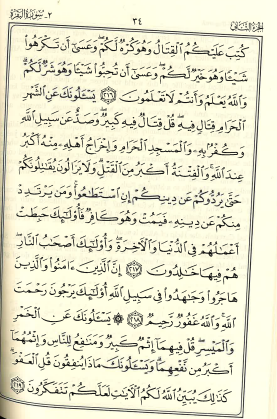 الجزء الثاني ٣٤ ٢- سورة البقرة
كُتِبَ عَلَيْكُمُ ٱلْقِتَالُ وَهُوَ كُرْهٌ لَّكُمْ وَعَسَىٰٓ أَن تَكْرَهُوا۟
شَيْـًٔا وَهُوَ خَيْرٌ لَّكُمْ وَعَسَىٰٓ أَن تُحِبُّوا۟ شَيْـًٔا وَهُوَ شَرٌّ لَّكُمْ
وَٱللَّهُ يَعْلَمُ وَأَنتُمْ لَا تَعْلَمُونَ ٢١٦ يَسْـَٔلُونَكَ عَنِ ٱلشَّهْرِ
ٱلْحَرَامِ قِتَالٍ فِيهِ قُلْ قِتَالٌ فِيهِ كَبِيرٌ وَصَدٌّ عَن سَبِيلِ ٱللَّهِ
وَكُفْرٌۢ بِهِۦ وَٱلْمَسْجِدِ ٱلْحَرَامِ وَإِخْرَاجُ أَهْلِهِۦ مِنْهُ أَكْبَرُ
عِندَ ٱللَّهِ وَٱلْفِتْنَةُ أَكْبَرُ مِنَ ٱلْقَتْلِ وَلَا يَزَالُونَ يُقَـٰتِلُونَكُمْ
حَتَّىٰ يَرُدُّوكُمْ عَن دِينِكُمْ إِنِ ٱسْتَطَـٰعُوا۟ وَمَن يَرْتَدِدْ
مِنكُمْ عَن دِينِهِۦ فَيَمُتْ وَهُوَ كَافِرٌ فَأُو۟لَـٰٓئِكَ حَبِطَتْ
أَعْمَـٰلُهُمْ فِى ٱلدُّنْيَا وَٱلْـَٔاخِرَةِ وَأُو۟لَـٰٓئِكَ أَصْحَـٰبُ ٱلنَّارِ
هُمْ فِيهَا خَـٰلِدُونَ ٢١٧ إِنَّ ٱلَّذِينَ ءَامَنُوا۟ وَٱلَّذِينَ
هَاجَرُوا۟ وَجَـٰهَدُوا۟ فِى سَبِيلِ ٱللَّهِ أُو۟لَـٰٓئِكَ يَرْجُونَ رَحْمَتَ
ٱللَّهِ وَٱللَّهُ غَفُورٌ رَّحِيمٌ ٢١٨ ۞ يَسْـَٔلُونَكَ عَنِ ٱلْخَمْرِ
وَٱلْمَيْسِرِ قُلْ فِيهِمَآ إِثْمٌ كَبِيرٌ وَمَنَـٰفِعُ لِلنَّاسِ وَإِثْمُهُمَآ
أَكْبَرُ مِن نَّفْعِهِمَا وَيَسْـَٔلُونَكَ مَاذَا يُنفِقُونَ قُلِ ٱلْعَفْوَ
كَذَٰلِكَ يُبَيِّنُ ٱللَّهُ لَكُمُ ٱلْـَٔايَـٰتِ لَعَلَّكُمْ تَتَفَكَّرُونَ ٢١٩